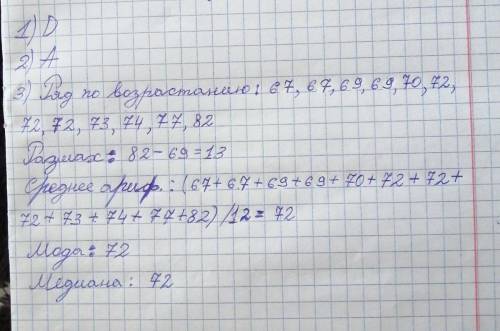 1) D
2) А
3) Ряд по возрастанию: 67, 67, 69, 69, 70, 72,
72, 72, 73, 74, 77, 82
Размах: 82 - 69 = 13
Среднее ариф.: (67+67+69+69+70+72+72+
72+73+74+77+82)/12 = 72
Мода: 72
Медиана: 72